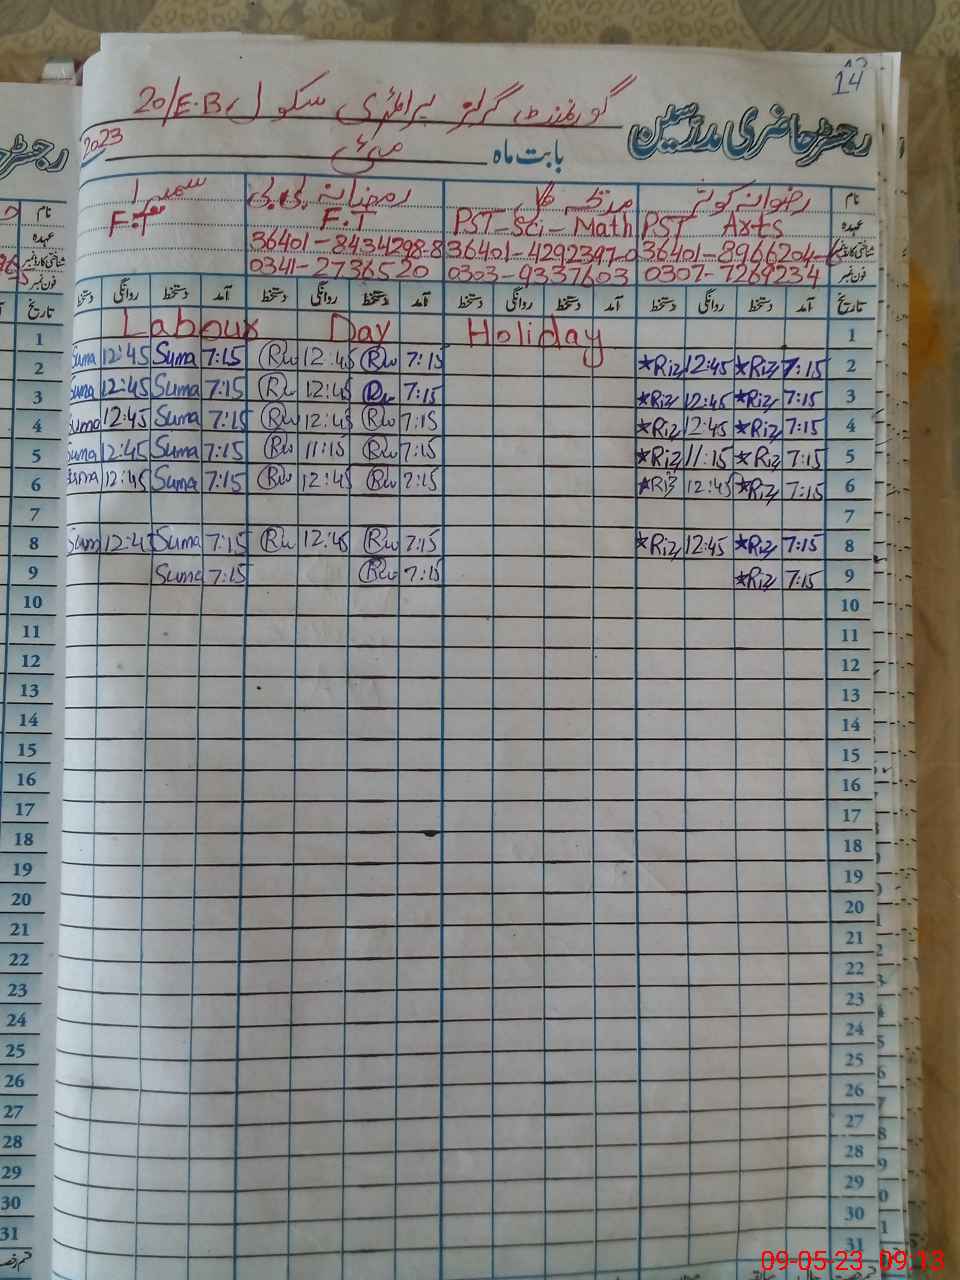 14
گورنمنٹ گرلز پرائمری سکول 20/E.B
رجسٹر حاضری مدرسین
بابت ماہ مئی 2023
نام رضوانہ کوثر رمضانہ بی بی سمیرا
عہدہ PST Arts PST-Sci-Math F.T F.T
شناختی کارڈ نمبر 36401-8966204-6 36401-4292397-0 36401-8434298-8
فون نمبر 0307-7269234 0303-9337603 0341-2736520
تاریخ آمد دستخط روانگی دستخط آمد دستخط روانگی دستخط آمد دستخط روانگی دستخط آمد دستخط روانگی دستخط
1 Labour Day Holiday
2 7:15 *Riz 12:45 *Riz 7:15 Rw 12:45 Rw 7:15 Suma 12:45 Suma
3 7:15 *Riz 12:45 *Riz 7:15 Rw 12:45 Rw 7:15 Suma 12:45 Suma
4 7:15 *Riz 12:45 *Riz 7:15 Rw 12:45 Rw 7:15 Suma 12:45 Suma
5 7:15 *Riz 11:15 *Riz 7:15 Rw 11:15 Rw 7:15 Suma 12:45 Suma
6 7:15 *Riz 12:45 *Riz 7:15 Rw 12:45 Rw 7:15 Suma 12:45 Suma
7
8 7:15 *Riz 12:45 *Riz 7:15 Rw 12:45 Rw 7:15 Suma 12:45 Suma
9 7:15 *Riz 7:15 Rw 7:15 Suma
10
11
12
13
14
15
16
17
18
19
20
21
22
23
24
25
26
27
28
29
30
31
09-05-23 09:13